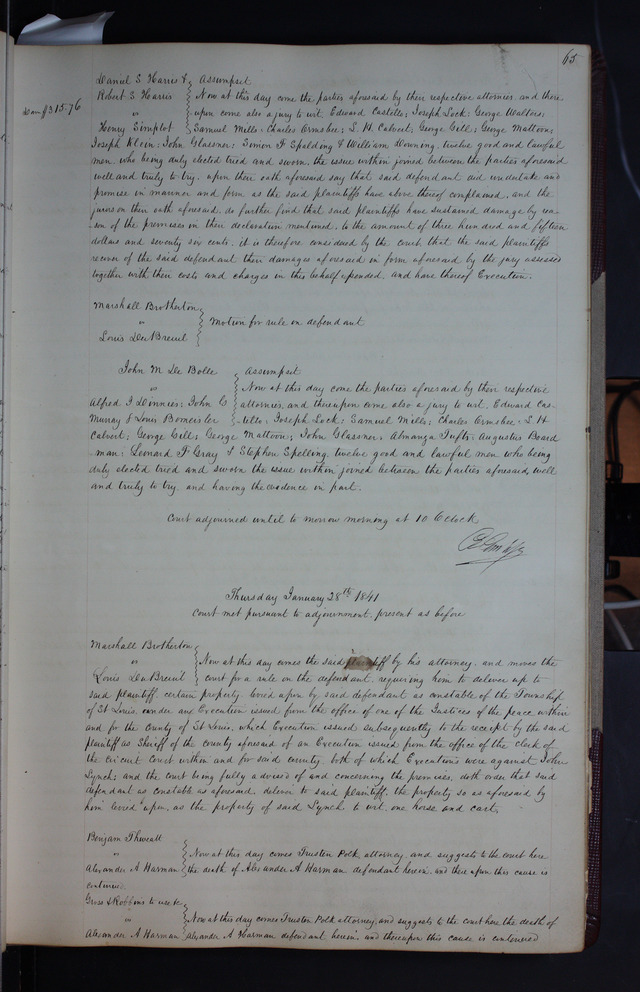 65
Daniel S. Harris & } Assumpsit
Robert S Harris } Now at this day come the parties aforesaid by their respective attornies and there
Dam $315.76
vs } upon come also a jury to wit. Edward Castello; Joseph Lock; George Walters;
Henry Simplot } Samuel Mills; Charles Ormsbee; S. H. Calvert; George Gell; George Mattoon;
Joseph Klein; John Glassner; Simon F Spalding & William Downing, twelve good and lawful
men, who being duly elected tried and sworn, the issue within joined between the parties aforesaid
well and truly to try, upon their oath aforesaid say that said defendant did undertake and
promise in manner and form as the said plaintiffs have above thereof complained, and the
jurors on their oath aforesaid, do further find that said plaintiffs have sustained damage by rea
-son of the premises in their declaration mentioned, to the amount of three hundred and fifteen
dollars and seventy six cents. it is therefore considered by the court that the said plaintiffs
recover of the said defendant their damages aforesaid in form aforesaid by the jury assessed
together with their costs and charges in this behalf expended. and have thereof Execution.
Marshall Brotherton
vs } Motion for rule on defendant
Louis DuBreuil
John M De Bolle } Assumpsit
vs } Now at this day come the parties aforesaid by their respective
Alfred I Vinnies; John C } attornies, and thereupon come also a jury to wit. Edward Cas-
Murray & Louis Bomeisler } -tello; Joseph Lock; Samuel Mills; Charles Ormsbee; S. H
Calvert; George Gell; George Mattoon; John Glassner; Almanza Tufts; Augustus Beard
-man; Leonard F Gray & Stephen Spelling, twelve good and lawful men who being
duly elected tried and sworn the issue within joined between the parties aforesaid, well
and truly to try, and having the evidence in part.
Court adjourned until to morrow morning at 10 O'Clock
Thursday January 28th 1841
Court met pursuant to adjournment. present as before
Marshall Brotherton
vs } Now at this day comes the said plaintiff by his attorney, and moves the
Louis DuBreuil } court for a rule on the defendant, requiring him to deliver up to
said plaintiff, certain property levied upon by said defendant as constable of the Township
of St Louis, under an Execution issued from the office of one of the Justices of the peace within
and for the County of St Louis, which Execution issued subsequently to the receipt by the said
plaintiff as Sheriff of the county aforesaid of an Execution issued from the office of the clerk of
the circuit Court within and for said county, both of which Executions were against John
Lynch; and the court being fully advised of and concerning the premises, doth order that said
defendant as constable as aforesaid, deliver to said plaintiff, the property so as aforesaid by
him levied upon, as the property of said Lynch to wit, one horse and cart.
Benjam Thweatt
vs } Now at this day comes Trusten Polk, attorney, and suggests to the court here
Alexander A Harman } the death of Alexander A Harman defendant herein, and there upon this cause is
continued.
Gross & Robbins to use &c
vs } Now at this day comes Trusten Polk attorney, and suggests to the court here the death of
Alexander A Harman } Alexander A Harman defendant herein, and thereupon this cause is continued